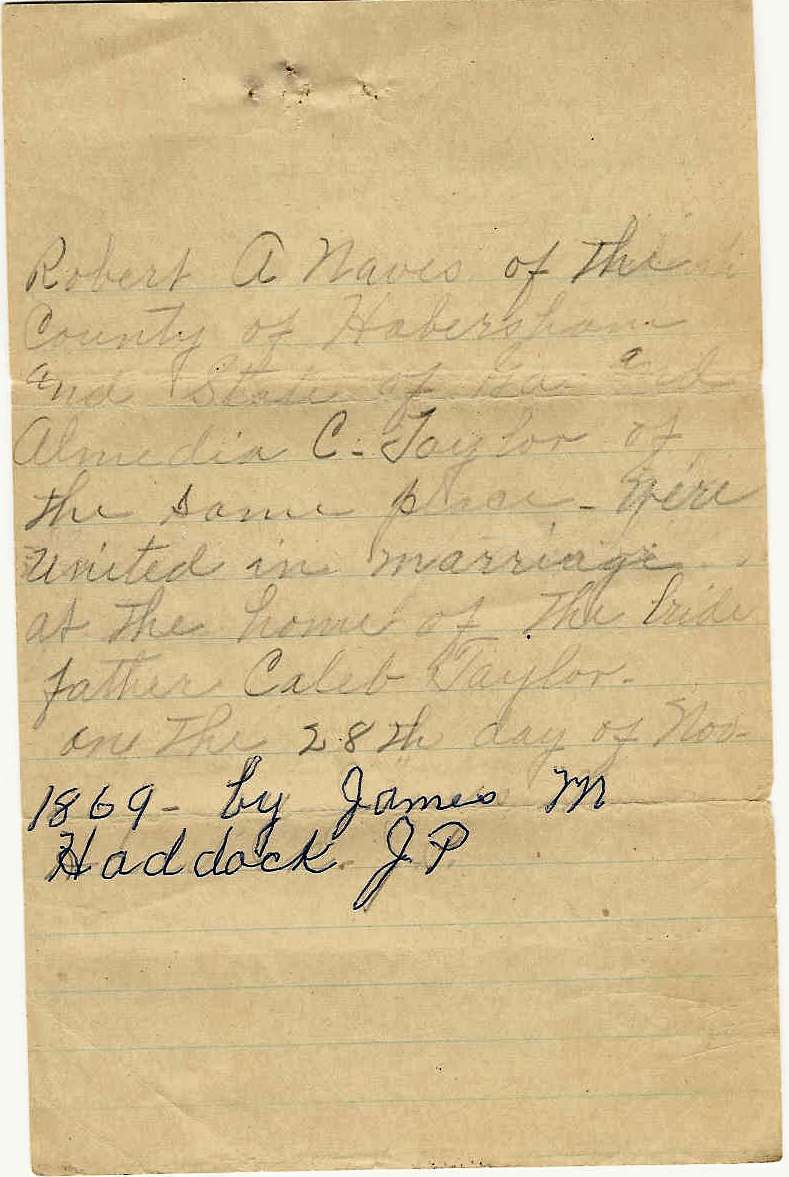 Robert A Naves of the
County of Habersham
and State of Ga. and
Almedia C. Taylor of
the same place - Were
United in marriage
at the home of the bride
father Caleb Taylor.
on the 28th day of Nov-
1869 - by James M
Haddock J P